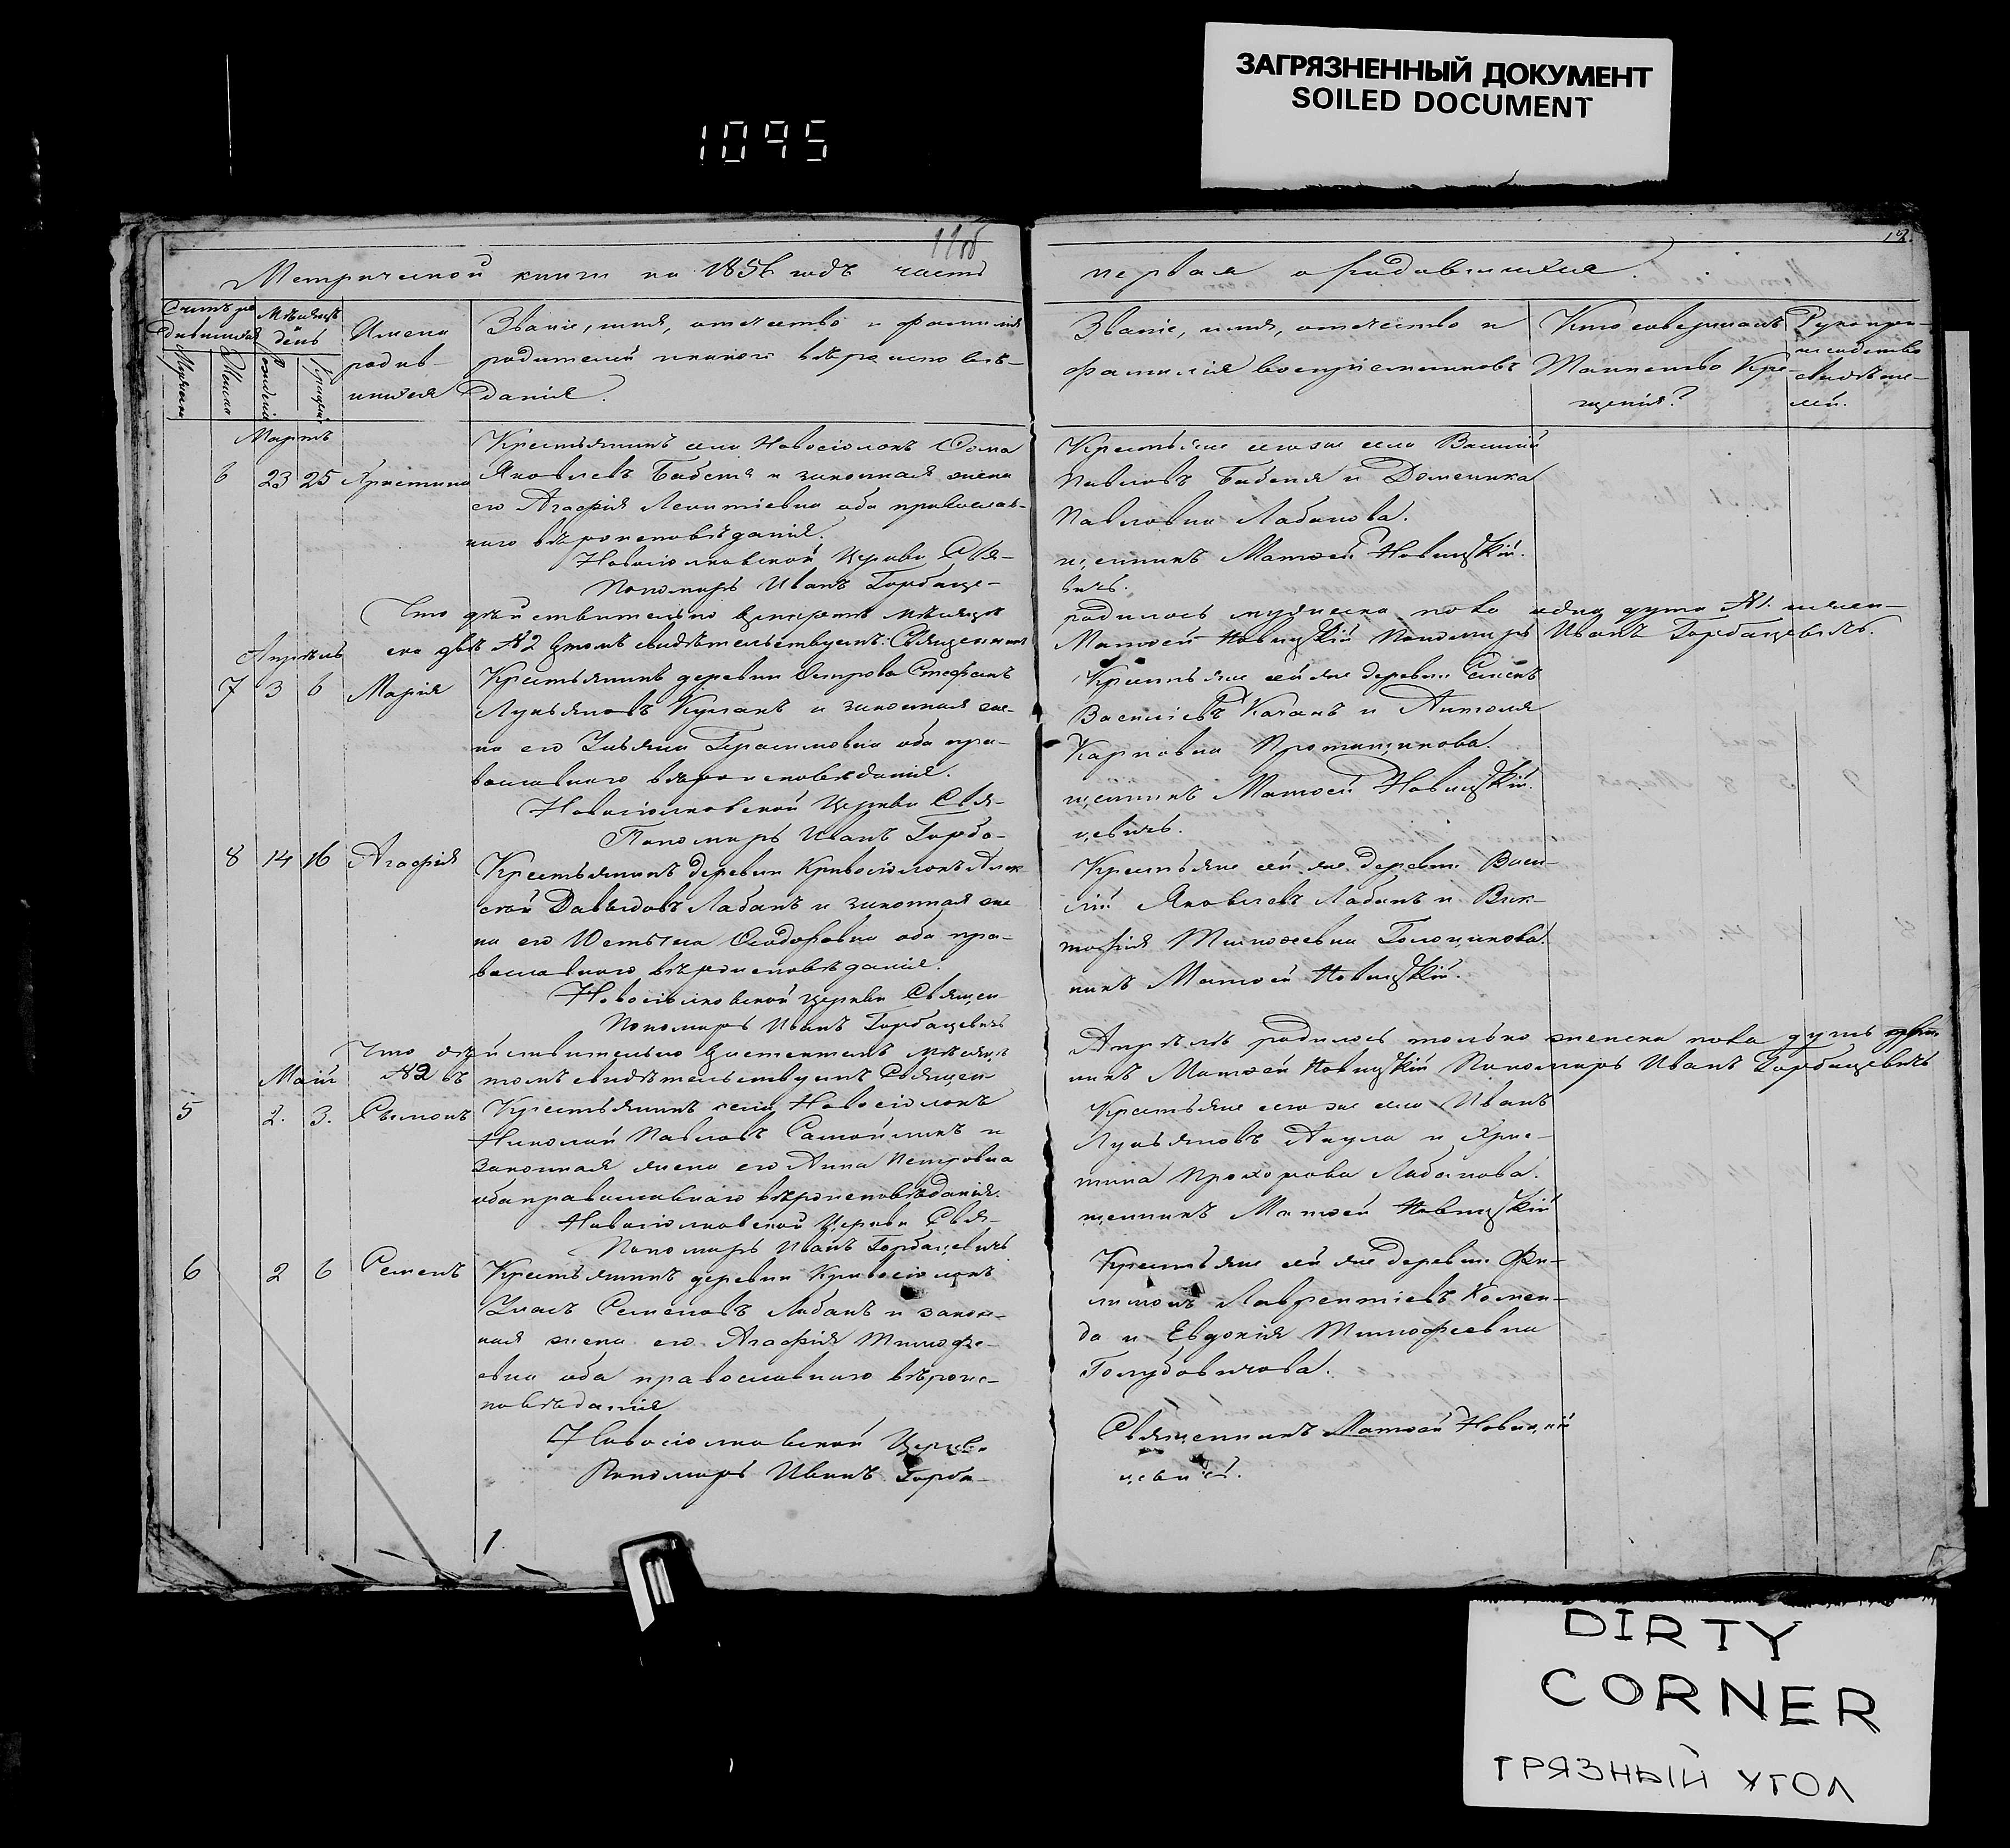 ЗАГРЯЗНЕННЫЙ ДОКУМЕНТ
SOILED DOCUMENT
1095
11об
12.
Метрической книги на 1856 годъ часть
первая о родившихся.
Счетъ ро
дившихся
Мужеска
Женска
Мѣсяцъ
и
день
Рожденія
Крещенія
Имена
родив-
шихся
Званіе, имя, отчество и фамилія
родителей и какого вѣроисповѣ-
данія.
Званіе, имя, отчество и
фамилія воспріемниковъ
Кто совершалъ
Таинство Кре-
щенія?
Рукопри-
кладство
свидѣте-
лей.
Мартъ
6 23 25 Христина
Крестьянинъ села Новосіолокъ Фома
Яковлевъ Бабеня и законная жена
его Агафія Леонтіевна оба православ-
наго вѣроисповѣданія.
Новосіолковской Церкви Свя-
Пономарь Иванъ Горбаце-
Крестьяне егоже села Василій
Павловъ Бабеня и Доменика
Павловна Лабанова.
щенникъ Матоей Новицкій.
вичь.
Что дѣйствительно въ мартѣ мѣсяцѣ
ска двѣ №2 въ томъ свидѣтельствуемъ: Священникъ
родилось мужеска пола одна душа №1. женс-
Матоей Новицкій Пономарь Иванъ Горбацевичь.
Апрѣль
7 3 6 Марія
Крестьянинъ деревни Острова Стефанъ
Лукьяновъ Качанъ и законная же-
на его Ульяна Герасимовна оба пра-
вославнаго вѣроисповѣданія.
Новосіолковской Церкви Свя-
Пономарь Иванъ Горба-
Крестьяне сей же деревни
Василіевъ Качанъ и Антоля
Карповна
щенникъ Матоей Новицкій.
цевичь.
8 14 16 Агафія
Крестьянинъ деревни Кривосіолокъ Алек
сѣй Давыдовъ Лабанъ и законная же
на его Юстына Ѳеодоровна оба пра-
вославнаго вѣроисповѣданія.
Новосіолковской Церкви Священ
Пономарь Иванъ Горбацевичь
Крестьяне сей же деревни Васи-
лій Яковлевъ Лабанъ и Вик-
торія Тимоѳеевна
никъ Матоей Новицкій.
Что дѣйствительно мѣсяцѣ
№2 въ томъ свидѣтельствуемъ Священ
Апрѣлѣ родилось только женска пола душъ двѣ
никъ Матоей Новицкій Пономарь Иванъ Горбацевичь
Май
5 2. 3. Сымонъ
Крестьянинъ села Новосіолокъ
Николай Павловъ Самойликъ и
законная жена его Анна Петровна
оба православнаго вѣроисповѣданія.
Новосіолковской Церкви Свя-
Пономарь Иванъ Горбацевичь
Крестьяне егоже села Иванъ
Лукьяновъ Акула и Хрис-
тина Прохорова Лабанова.
щенникъ Матоей Новицкій
6 2 6 Семенъ
Крестьянинъ деревни Кривосіолокъ
Уласъ Семеновъ Лабанъ и закон-
ная жена его Агафія Тимофе-
евна оба православнаго вѣроис-
повѣданія
Новосіолковской Церкви
Пономарь Иванъ Горба-
Крестьяне сей же деревни Фи-
лимонъ Лаврентіевъ Комен-
да и Евдокія Тимофеевна
Голубовичова.
Священникъ Матоей Новицкій
цевичь.
1
DIRTY
CORNER
ГРЯЗНЫЙ УГОЛ